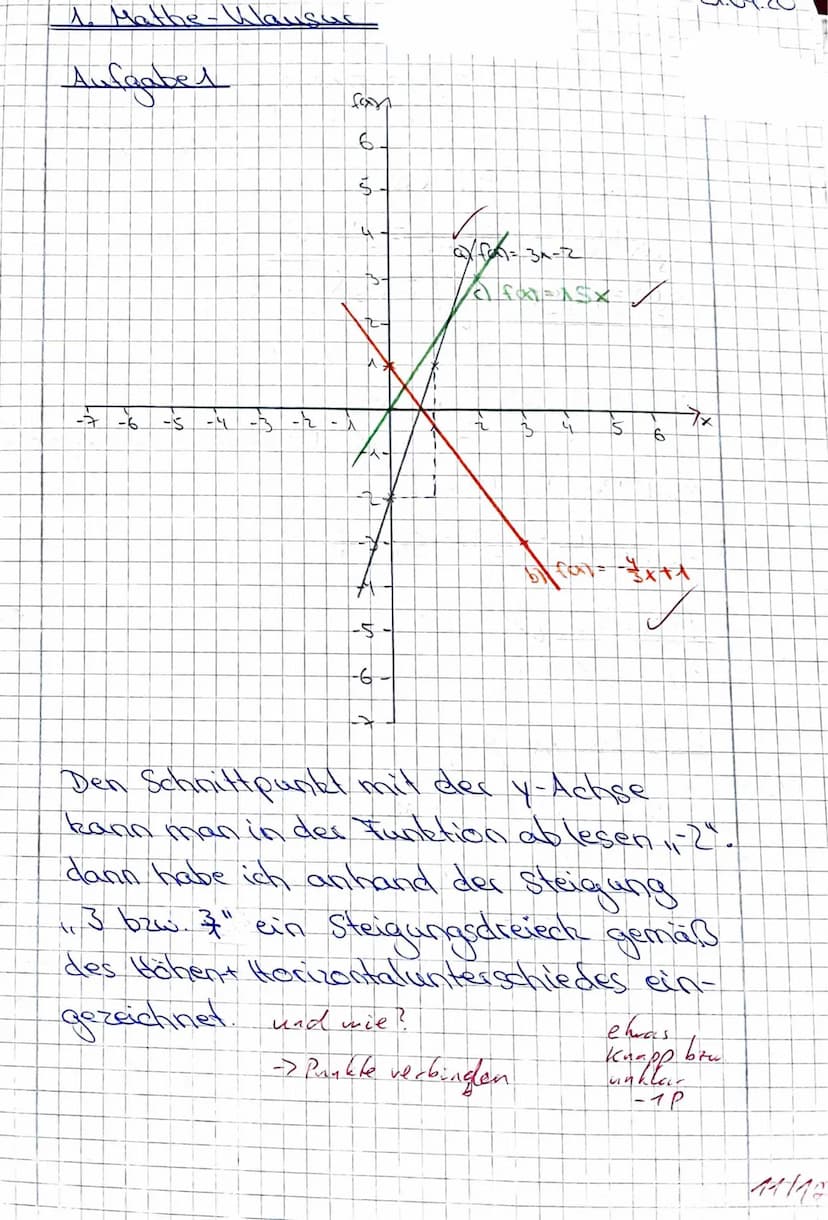 1. Mathe-Klausur
Aufgabe 1
f(x)
6
5
4
a) f(x) = 3x-2
3
c) f(x) = 1,5x
2
1
-7 -6 -5 -4 -3 -2 -1 2 3 4 5 6 x
-1
-2
-3
b) f(x) = -4/3x+1
-4
-5
-6
-7
Den Schnittpunkt mit der y-Achse
kann man in der Funktion ablesen „-2“.
dann habe ich anhand der Steigung
„3 bzw. 3/1“ ein Steigungsdreieck gemäß
des Höhen + Horizontalunterschiedes ein-
gezeichnet. und wie?
-> Punkte verbinden
etwas
knapp bzw
unklar
-1P